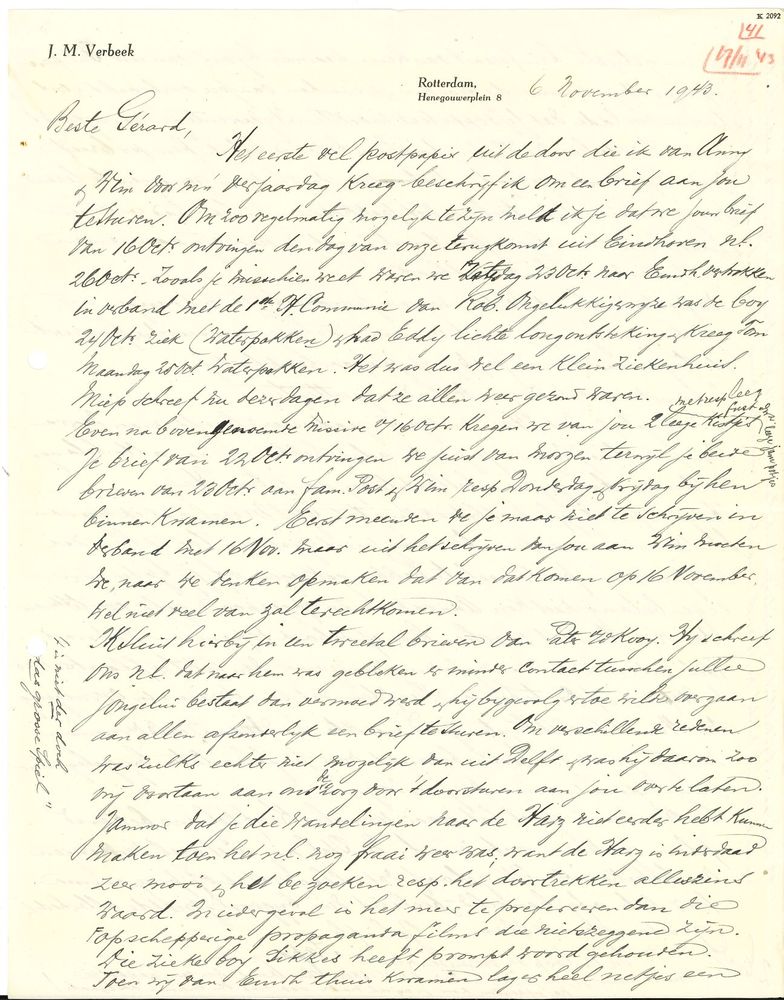 K 2092
141
17/11 '43
J. M. Verbeek
Rotterdam,
Henegouwerplein 8
6 November 1943.
Beste Gérard,
Het eerste vel postpapier uit de doos die ik van Anny
& Wim voor m'n verjaardag kreeg beschrijf ik om een brief aan jou
te sturen. Om zoo regelmatig mogelijk te zijn meld ik je dat we jouw brief
van 16 Octr. ontvingen den dag van onze terugkomst uit Eindhoven nl.
26 Octr. Zooals je misschien weet waren we Zaterdag 23 Octr. naar Eindh. vertrokken
in verband met de 1ste H. Communie van Rob. Ongelukkigerwijze was de boy
24 Octr. ziek (Waterpokken) & had Eddy lichte longontsteking & kreeg Tom
Maandag 25 Oct Waterpokken. Het was dus wel een klein ziekenhuis.
Miep schreef nu dezer dagen dat ze allen weer gezond waren.
Even na bovengenoemde missive v/ 16 Octr. kregen we van jou 2 leege kistjes
met resp. leeg
Je brief van 22 Octr. ontvingen we juist van morgen terwijl je beide
brieven van 23 Octr aan fam. Post & Wim resp Donderdag & Vrijdag bij hen
binnenkwamen. Eerst meenden we je maar niet te schrijven in
verband met 16 Nov. maar uit het schrijven van jou aan Wim moeten
we, naar we denken opmaken dat van dat komen op 16 November
wel niet veel van zal terechtkomen.
Ik sluit hierbij in een tweetal brieven van Pater v/d Kooy. Hij schreef
ons nl. dat naar hem was gebleken er minder contact tusschen jullie
jongelui bestaat dan vermoed werd & hij bijgevolg er toe wilde overgaan
aan allen afzonderlijk een brief te sturen. Om verschillende redenen
was zulks echter niet mogelijk dan uit Delft & was hij daarom zoo
vrij voortaan aan ons de zorg voor 't doorsturen aan jou over te laten.
Jammer dat je die wandelingen naar de Harz niet eerder hebt kunnen
maken toen het nl. nog fraai weer was, want de Harz is inderdaad
zeer mooi & het bezoeken resp. het doortrekken alleszins
waard. In ieder geval is het meer te prefereeren dan die
opschepperige propaganda films die nietszeggend zijn.
Die zieke boy Sikkes heeft prompt woord gehouden.
Toen wij van Eindh thuis kwamen lag er heel netjes een
't is niet der doch
"das grosse Spiel"